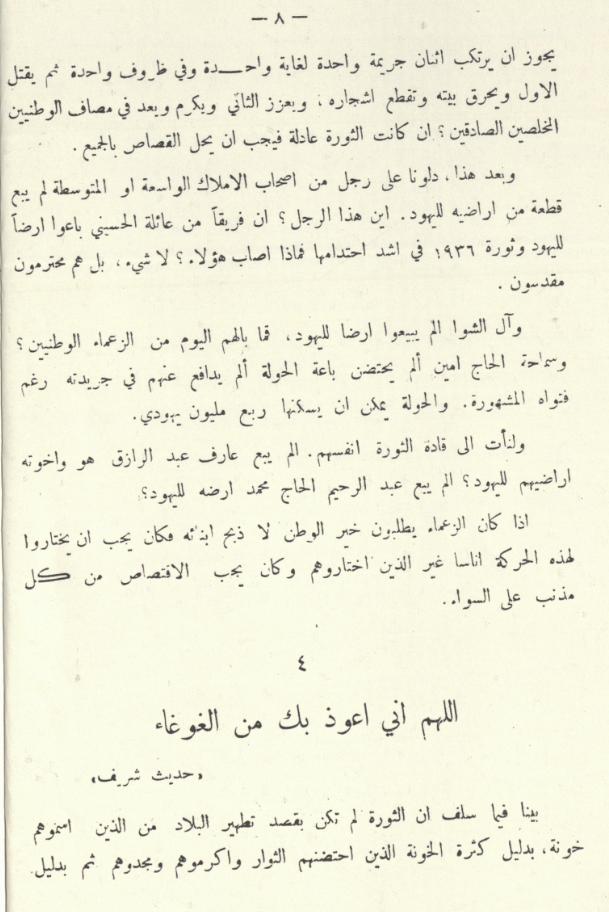 — ٨ —
يجوز ان يرتكب اثنان جريمة واحدة لغاية واحـــدة وفي ظروف واحدة ثم يقتل
الاول ويحرق بيته وتقطع اشجاره ، ويعزز الثاني ويكرم ويعد في مصاف الوطنيين
المخلصين الصادقين ؟ ان كانت الثورة عادلة فيجب ان يحل القصاص بالجميع .
وبعد هذا ، دلونا على رجل من اصحاب الاملاك الواسعة او المتوسطة لم يبع
قطعة من اراضيه لليهود . اين هذا الرجل ؟ ان فريقاً من عائلة الحسيني باعوا ارضاً
لليهود وثورة ١٩٣٦ في اشد احتدامها فماذا اصاب هؤلاء ؟ لا شيء ، بل هم محترمون
مقدسون .
وآل الشوا الم يبيعوا ارضا لليهود ، فما بالهم اليوم من الزعماء الوطنيين ؟
وسماحة الحاج امين ألم يحتضن باعة الحولة ألم يدافع عنهم في جريدته رغم
فتواه المشهورة . والحولة يمكن ان يسكنها ربع مليون يهودي .
ولنأت الى قادة الثورة انفسهم . الم يبع عارف عبد الرازق هو واخوته
اراضيهم لليهود ؟ الم يبع عبد الرحيم الحاج محمد ارضه لليهود ؟
اذا كان الزعماء يطلبون خير الوطن لا ذبح ابنائه فكان يجب ان يختاروا
لهذه الحركة اناسا غير الذين اختاروهم وكان يجب الاقتصاص من كل
مذنب على السواء .
٤
اللهم اني اعوذ بك من الغوغاء
«حديث شريف»
بينا فيما سلف ان الثورة لم تكن بقصد تطهير البلاد من الذين اسموهم
خونة ، بدليل كثرة الخونة الذين احتضنهم الثوار واكرموهم ومجدوهم ثم بدليل